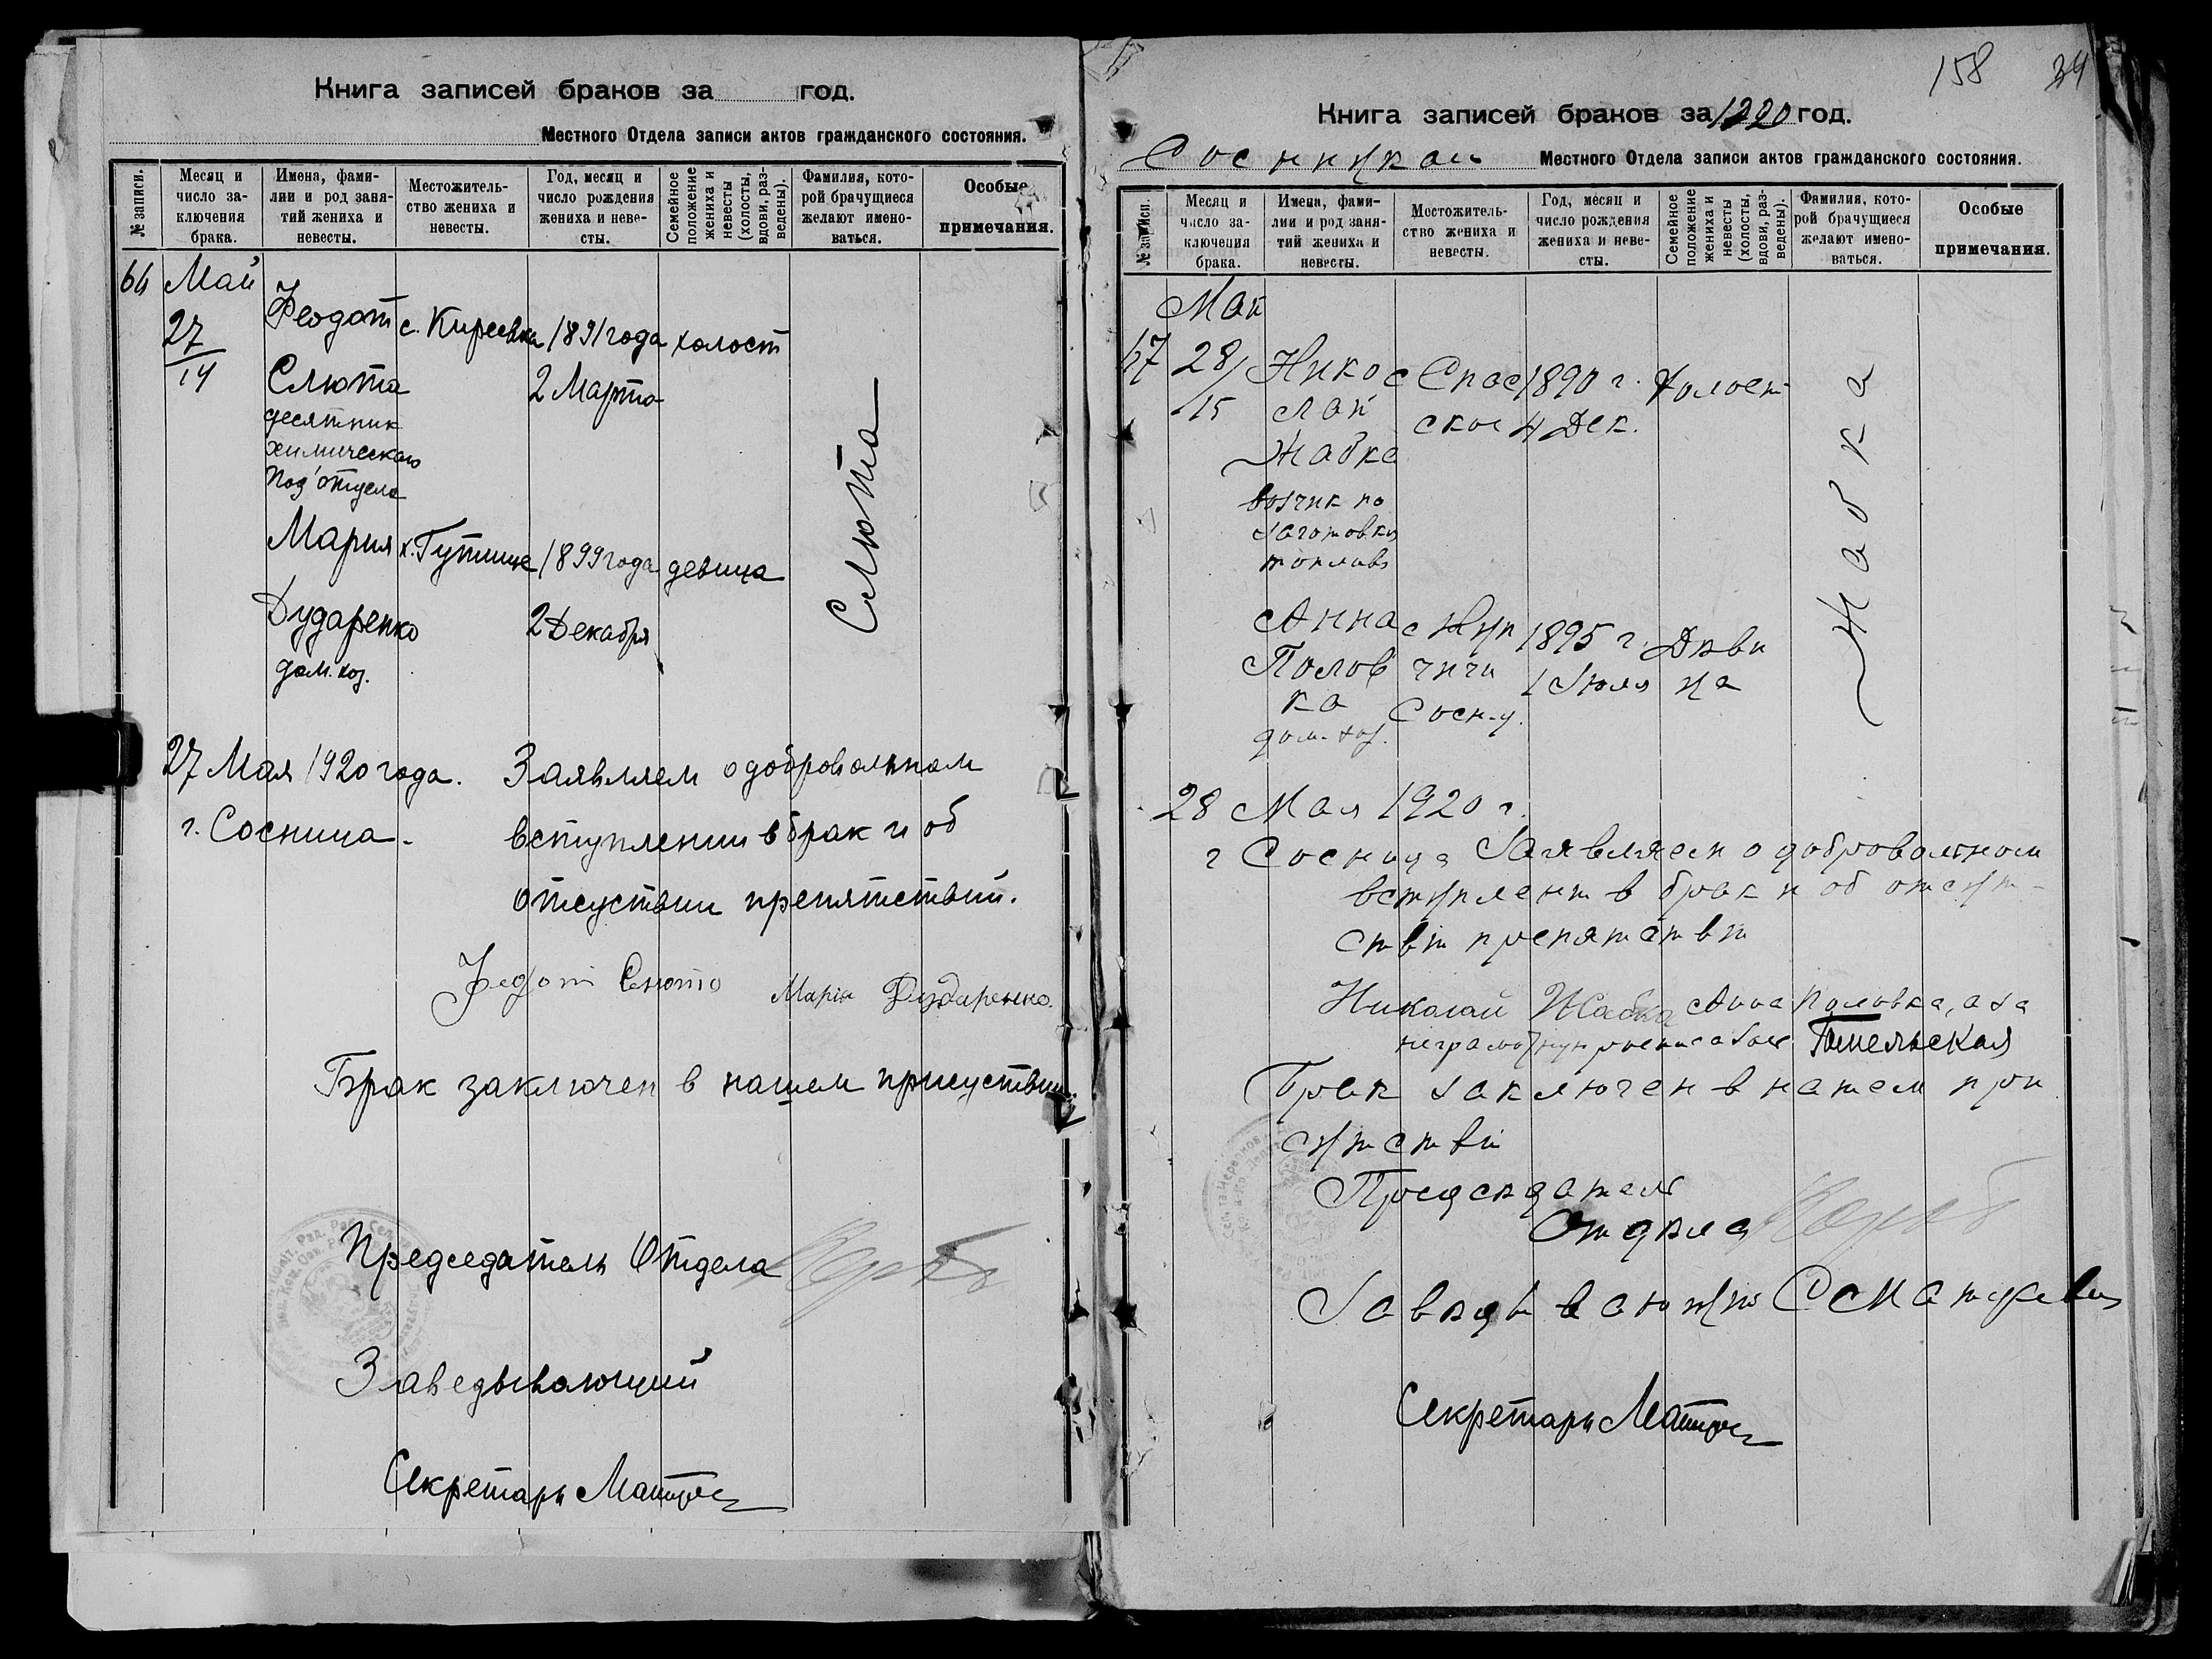 Книга записей браков за год.
Местного Отдела записи актов гражданского состояния.
№ записи.
Месяц и число за-ключения брака.
Имена, фами-лии и род заня-тий жениха и невесты.
Местожитель-ство жениха и невесты.
Год, месяц и число рождения жениха и неве-сты.
Семейное положение жениха и невесты (холосты, вдовы, раз-ведены).
Фамилия, кото-рой брачущиеся желают имено-ваться.
Особые примечания.
Май
27/14
Феодот с. Киреевка 1891 года холост
Слюта 2 Марта
десятник
химическаго
Под'отдела
Мария х. Гутище 1899 года девица
Дударенко 2 Декабря
дом. хоз.
Слюта
27 Мая 1920 года. Заявляем о добровольном
г. Сосница. вступлении в брак и об
отсуствии препятствий.
Федот Слюто Марія Дударенко.
Брак заключен в нашем присуствии.
Председатель Отдела
Заведывающий
Секретарь
158 34
Книга записей браков за 1920 год.
Местного Отдела записи актов гражданского состояния.
№ записи.
Месяц и число за-ключения брака.
Имена, фами-лии и род заня-тий жениха и невесты.
Местожитель-ство жениха и невесты.
Год, месяц и число рождения жениха и неве-сты.
Семейное положение жениха и невесты (холосты, вдовы, раз-ведены).
Фамилия, кото-рой брачущиеся желают имено-ваться.
Особые примечания.
Май
67 28/15 Нико с Спас 1890 г. Холост
лай ское 4 Дек.
Жабка
возчик по
заготовки
топлива
Анна с 1895 г. Деви
Полов чичи 1 Июля ца
ка Сосн.у.
дом. хоз.
Жабка
28 Мая 1920 г.
г Сосница Заявляем о добровольном
вступлении в брак и об отсут-
ствии препятствий
Николай Жабка Анна Половка, а за
неграмотную Гомельская
Брак заключен в нашем при
сутствии
Председатель
Отдела
Секретарь